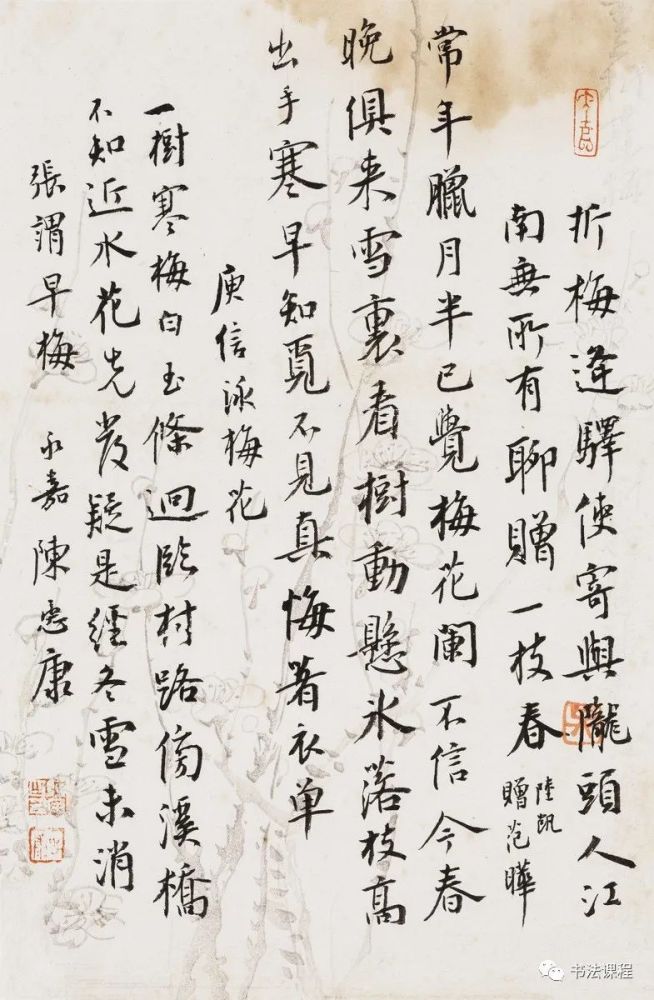 折梅逢驛使寄與隴頭人江
南無所有聊贈一枝春
陸凱
贈范曄
常年臘月半已覺梅花闌不信今春
晚俱来雪裏看樹動懸氷落枝高
出手寒早知覓不見真悔著衣单
庾信詠梅花
一樹寒梅白玉條迥臨村路傍溪橋
不知近水花先發疑是經冬雪未消
張謂早梅 永嘉陳忠康
书法课程